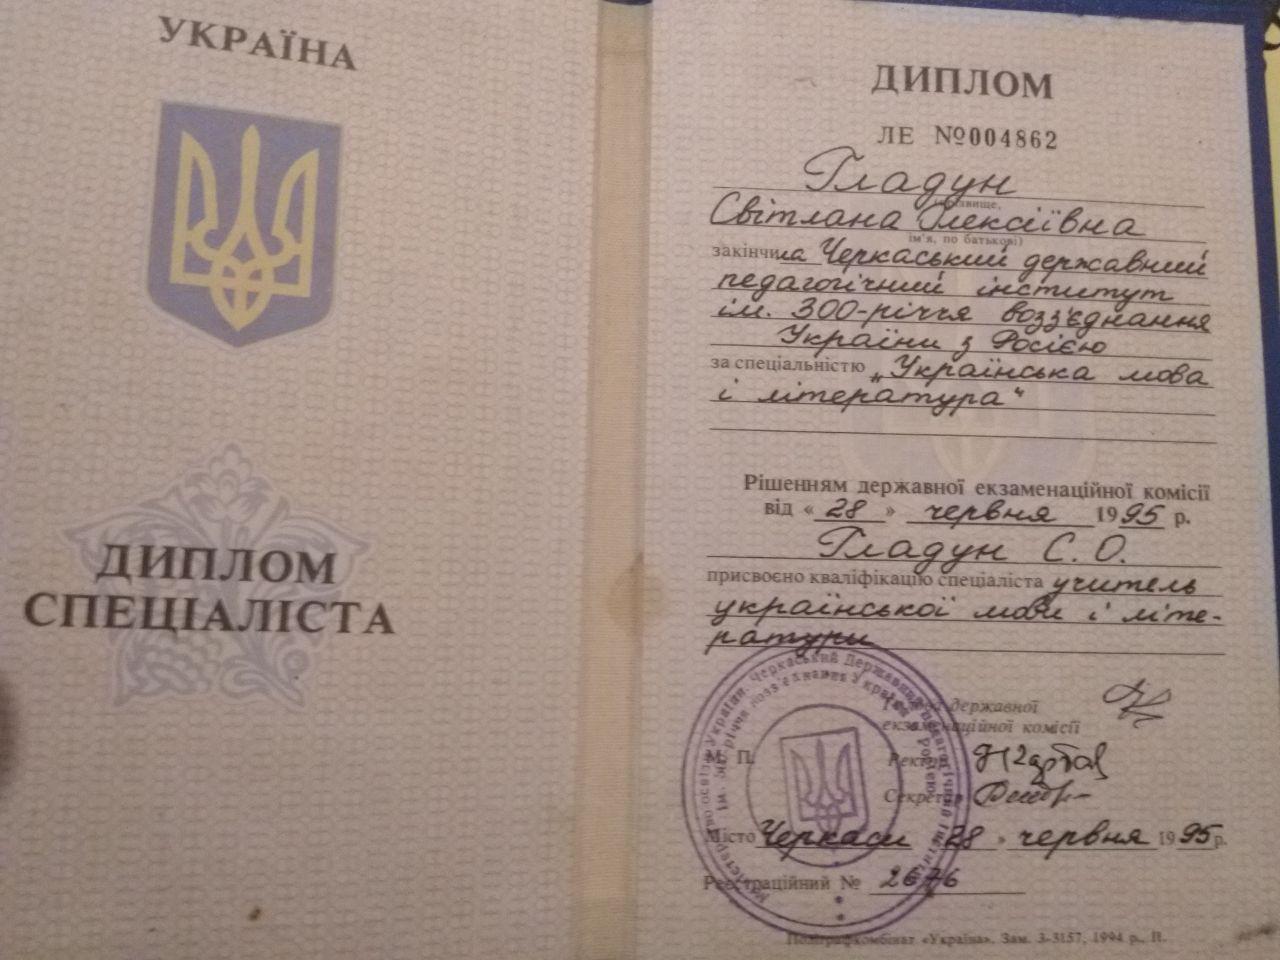 УКРАЇНА
ДИПЛОМ
СПЕЦІАЛІСТА
ДИПЛОМ
ЛЕ №004862
Гладун
прізвище,
Світлана Олексіївна
ім'я, по батькові)
закінчила Черкаський державний
педагогічний інститут
ім. 300-річчя возз'єднання
України з Росією
за спеціальністю „Українська мова
і література"
Рішенням державної екзаменаційної комісії
від «28» червня 1995 р.
Гладун С. О.
присвоєно кваліфікацію спеціаліста учитель
української мови і літе-
ратури
Голова державної
екзаменаційної комісії
М. П.
Ректор
Секретар
Місто Черкаси 28 » червня 1995 р.
Реєстраційний № 2676
Міністерство освіти України. Черкаський Державний педагогічний інститут
ім. 300 річчя возз'єднання України з Росією
Поліграфкомбінат «Україна». Зам. 3-3157, 1994 р., II.